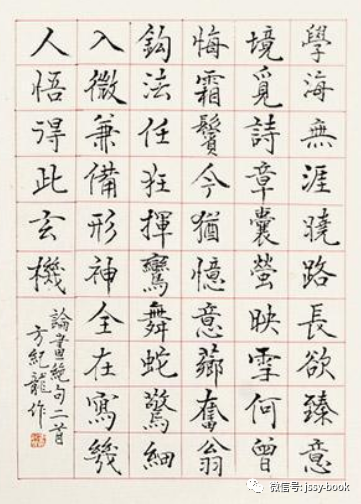 學海無涯曉路長欲臻意
境覓詩章囊螢映雪何曾
悔霜鬢今猶憶意薌奮翁
鈎法任狂揮鸞舞蛇驚細
入微兼備形神全在寫幾
人悟得此玄機
論畫絕句二首
方紀龍作
微信号: jssy-book